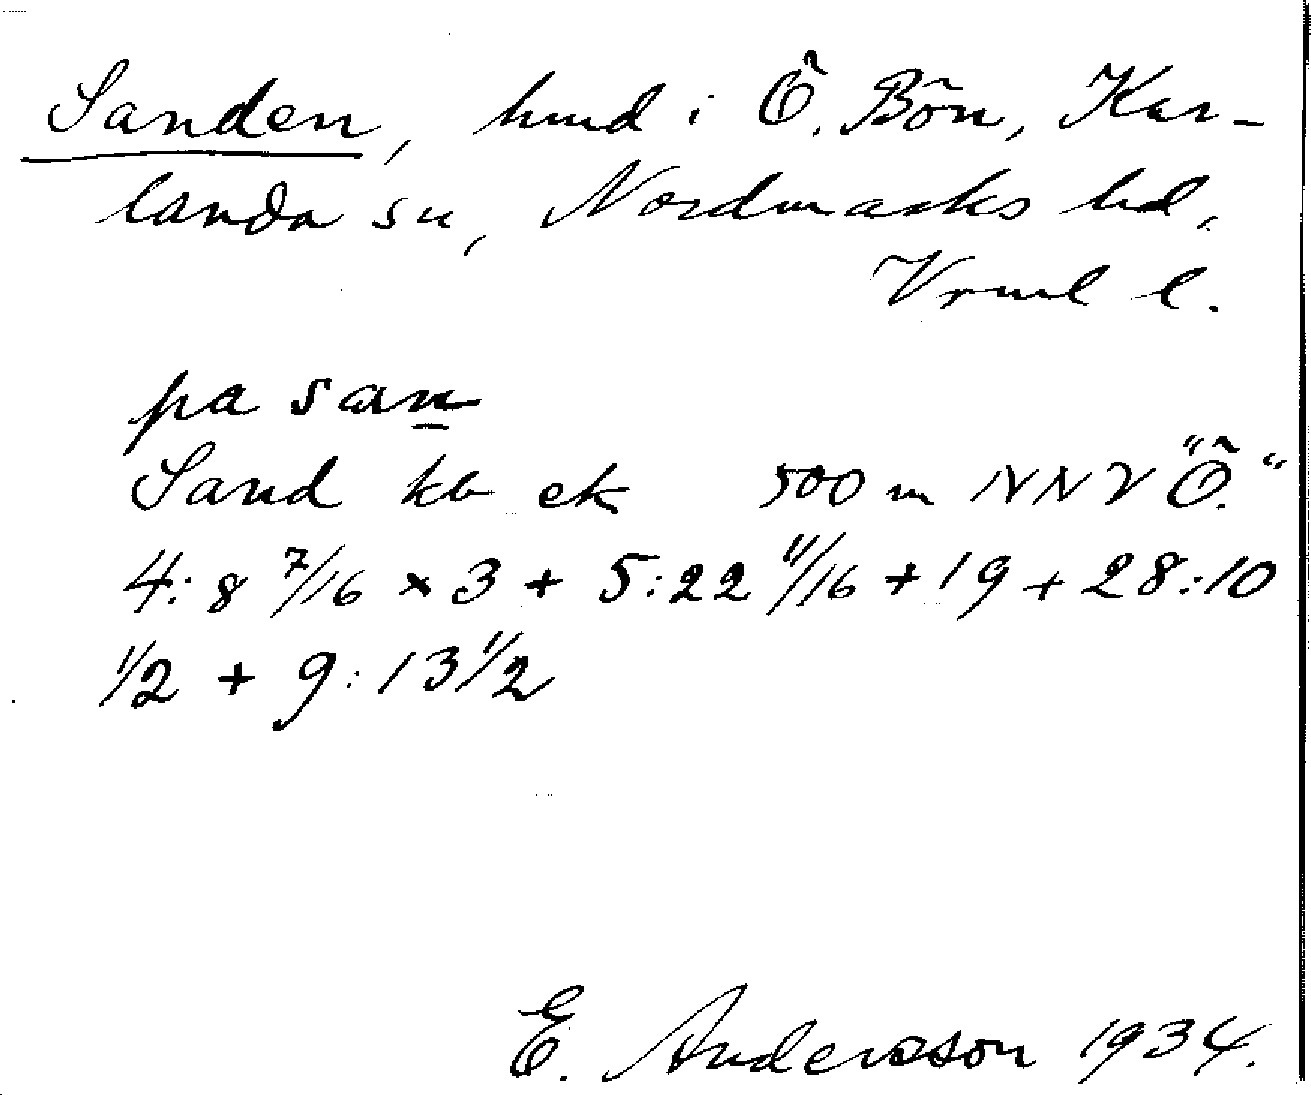 Sanden, hmd i Ö. Bön, Kar-
landa sn, Nordmarks hd,
Vrml l.
pa san
Sand kb ek 500 m NNV "Ö."
4:8 7/16 x 3 + 5:22 11/16 + 19 + 28:10
1/2 + 9:13 1/2
E. Andersson 1934.